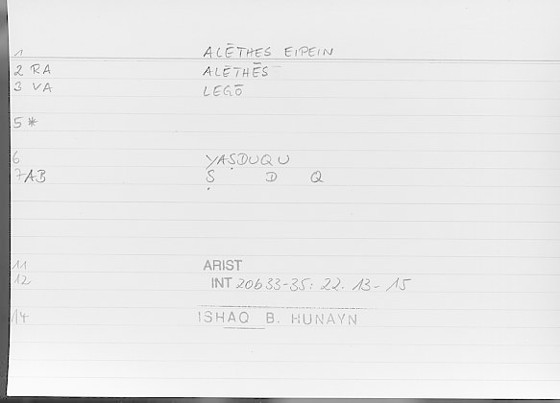 1 ALĒTHES EIPEIN
2 RA ALĒTHĒS
3 VA LEGŌ
5 *
6 YAṢDUQU
7 AB Ṣ D Q
11 ARIST
12 INT 20b33-35: 22. 13-15
14 ISHAQ B. HUNAYN